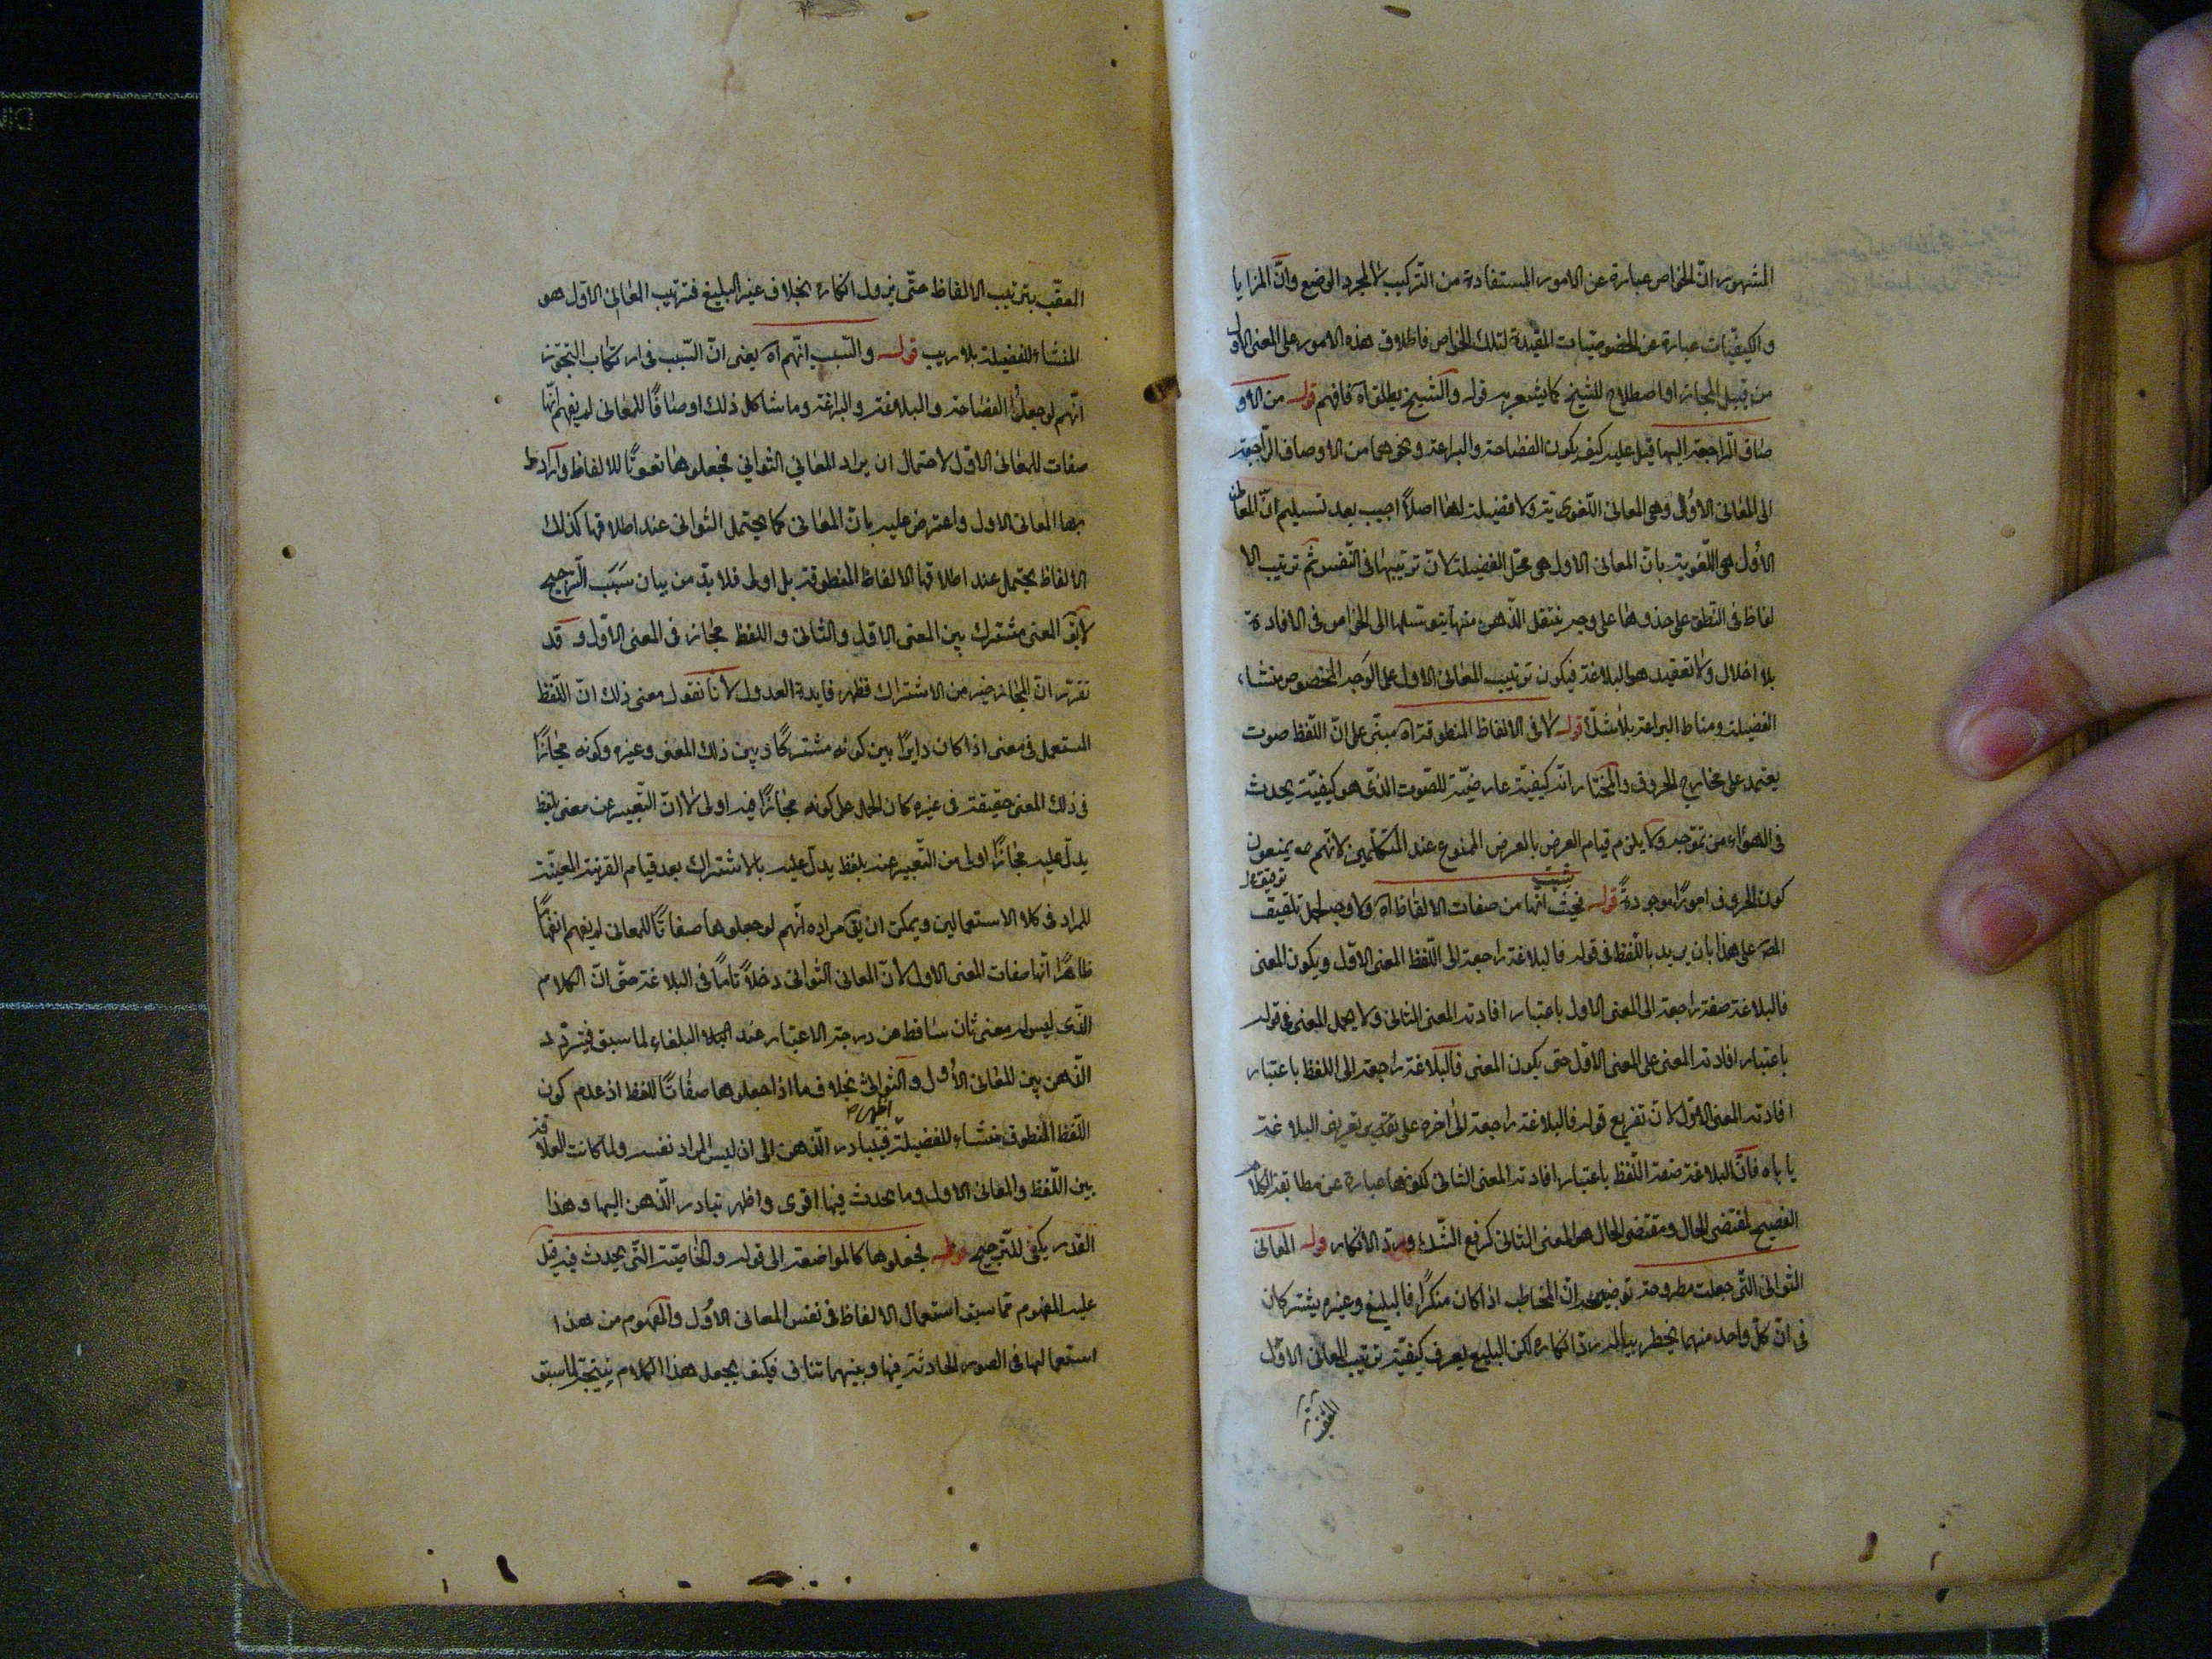 المشهور انّ الخواص عبارة عن الامور المستفادة من التّركيب لا لمجرد الوضع وانّ المزايا
والكيفيّات عبارة عن الخصوصيّات المفيدة لتلك الخواص فاطلاق هذه الامور على المعنى الاول
من قبيل المجاز او اصطلاح للشيخ كما يشعر به قوله والشيخ يطلقاه فافهم قوله من الاو
صاف الرّاجعة اليها قيل عليه كيف يكون الفصاحة والبراعة ونحوهما من الاوصاف الرّاجعة
الى المعانى الاُوَل وهى المعانى اللّغويّة ولا فضيلة لها اصلاً اجيب بعد تسليم انّ المعانى
الاُوَل هى اللّغوية بانّ المعانى الاول هى محلّ الفضيلة لانّ ترتيبها فى النّفس ثم ترتيب الا
لفاظ فى النّطق على حذوها على وجه ينتقل الذّهن منها يتوسّلها الى الخواص فى الافادة
بلا اخلال ولا تعقيد هو البلاغة فيكون ترتيب المعانى الاول على الوجه المخصوص منشاء
الفضيلة ومناط البراعة بلا شكّ قوله لا فى الالفاظ المنطوقة اه مبنّى على انّ اللّفظ صوت
يعتمد على مخارج الحروف والمختار انّه كيفيّة عارضيّة للصّوت الذّى هو كيفيّة يحدث
فى الهواء من تموّجه ولا يلزم قيام العرض بالعرض الممنوع عند المتكلّمين لانّهم يمنعون
كون الحروف امورًا موجودةً قوله فحيث يثبت انّها من صفات الالفاظ اه ولا وجه لحمل تلفيق
المصه على هذا بان يريد باللّفظ فى قوله فالبلاغة راجعة الى اللّفظ المعنى الاوّل ويكون المعنى
فالبلاغة صفة راجعة الى المعنى الاول باعتبار افادته المعنى الثانى ولا يحمل المعنى فى قوله
باعتبار افادته المعنى على المعنى الاوّل حتى يكون المعنى فالبلاغة راجعة الى اللفظ باعتبار
افادته المعنى الاوّل لانّ تفريع قوله فالبلاغة راجعة الى اخره على تعريف البلاغة
ياباه فانّ البلاغة صفة اللّفظ باعتبار افادته المعنى الثانى لكونها عبارة عن مطابقة الكلام
الفصيح لمقتضى الحال ومقتضى الحال هو المعنى الثانى كرفع الشّك وردّ الانكار قوله المعانى
الثّوانى التّى جعلت مطروحة توضيحه انّ المخاطب اذا كان منكرًا فالبليغ وغيره يشتركان
فى انّ كلّ واحد منهما يخطر بباله ردّ انكاره لكن البليغ يعرف كيفيّة ترتيب المعانى الاوّل
العقّب بترتيب الالفاظ حتّى يزول انكاره بخلاف غير البليغ فترتيب المعانى الاوّل هو
المنشاء للفضيلة بلا ريب قوله والسّبب انّهم اه يعنى انّ السّبب فى ارتكاب التجوّز
انّهم لو جعلوا الفصاحة والبلاغة والبراعة وما شاكل ذلك اوصافًا للمعانى لم يفهم انّها
صفات للمعانى الاوّل لاحتمال ان يراد المعانى الثوانى فجعلوها نعوتًا للالفاظ وارادوا
بها المعانى الاول واعترض عليه بانّ المعانى كما يحتمل الثوانى عند اطلاقها كذلك
الالفاظ يحتمل عند اطلاقها الالفاظ المنطوقة بل اولى فلا بدّ من بيان سَبَب التّرجيح
لا يقّ المعنى مشترك بين المعنى الاوّل والثانى واللفظ مجاز فى المعنى الاوّل وقد
تقرّر انّ المجاز خير من الاشتراك فظهر فايدة العدول لانّا نقول معنى ذلك انّ اللّفظ
المستعمل فى معنى اذا كان دايرًا بين كونه مشتركًا وبين ذلك المعنى وغيره وكونه مجازًا
فى ذلك المعنى حقيقة فى غيره كان الحمل على كونه مجازًا فيه اولى لا انّ التّعبير عن معنى بلفظ
يدلّ عليه مجازًا اولى من التّعبير عنه بلفظ يدلّ عليه بالاشتراك بعد قيام القرينة المعيّنة
للمراد فى كلا الاستعمالين ويمكن ان يقّ مراده انّهم لو جعلوها صفاتًا للمعانى لم يفهم
ظاهرًا انّها صفات المعنى الاول لانّ المعانى الثوانى دخلاً تامًا فى البلاغة حتّى انّ الكلام
الذّى ليس له معنى ثان ساقط عن درجة الاعتبار عند البلغاء لما سبق فيتردّد
الذّهن بين المعانى الاُوَل والثّوانى بخلاف ما اذا جعلوها صفاتًا للفظ اذ عدم كون
اللّفظ المنطوق منشاء للفضيلة اظهر فيتبادر الذّهن الى ان ليس المراد نفسه ولما كانت العلاقة
بين اللّفظ والمعانى الاول وما يحدث فيها اقوى واظهر تبادر الذّهن اليها وهذا
القدر يكفى للتّرجيح قوله فجعلوها كالمواضعة الى قوله والخاصّيّة التّى يحدث فيه قيل
عليه المفهوم ممّا سبق استعمال الالفاظ فى نفس المعانى الاُوَل والمفهوم من هذا
استعمالها فى الصور الحادثة فيها وبينهما تنافى فكيف يجعل هذا الكلام نتيجة لما سبق